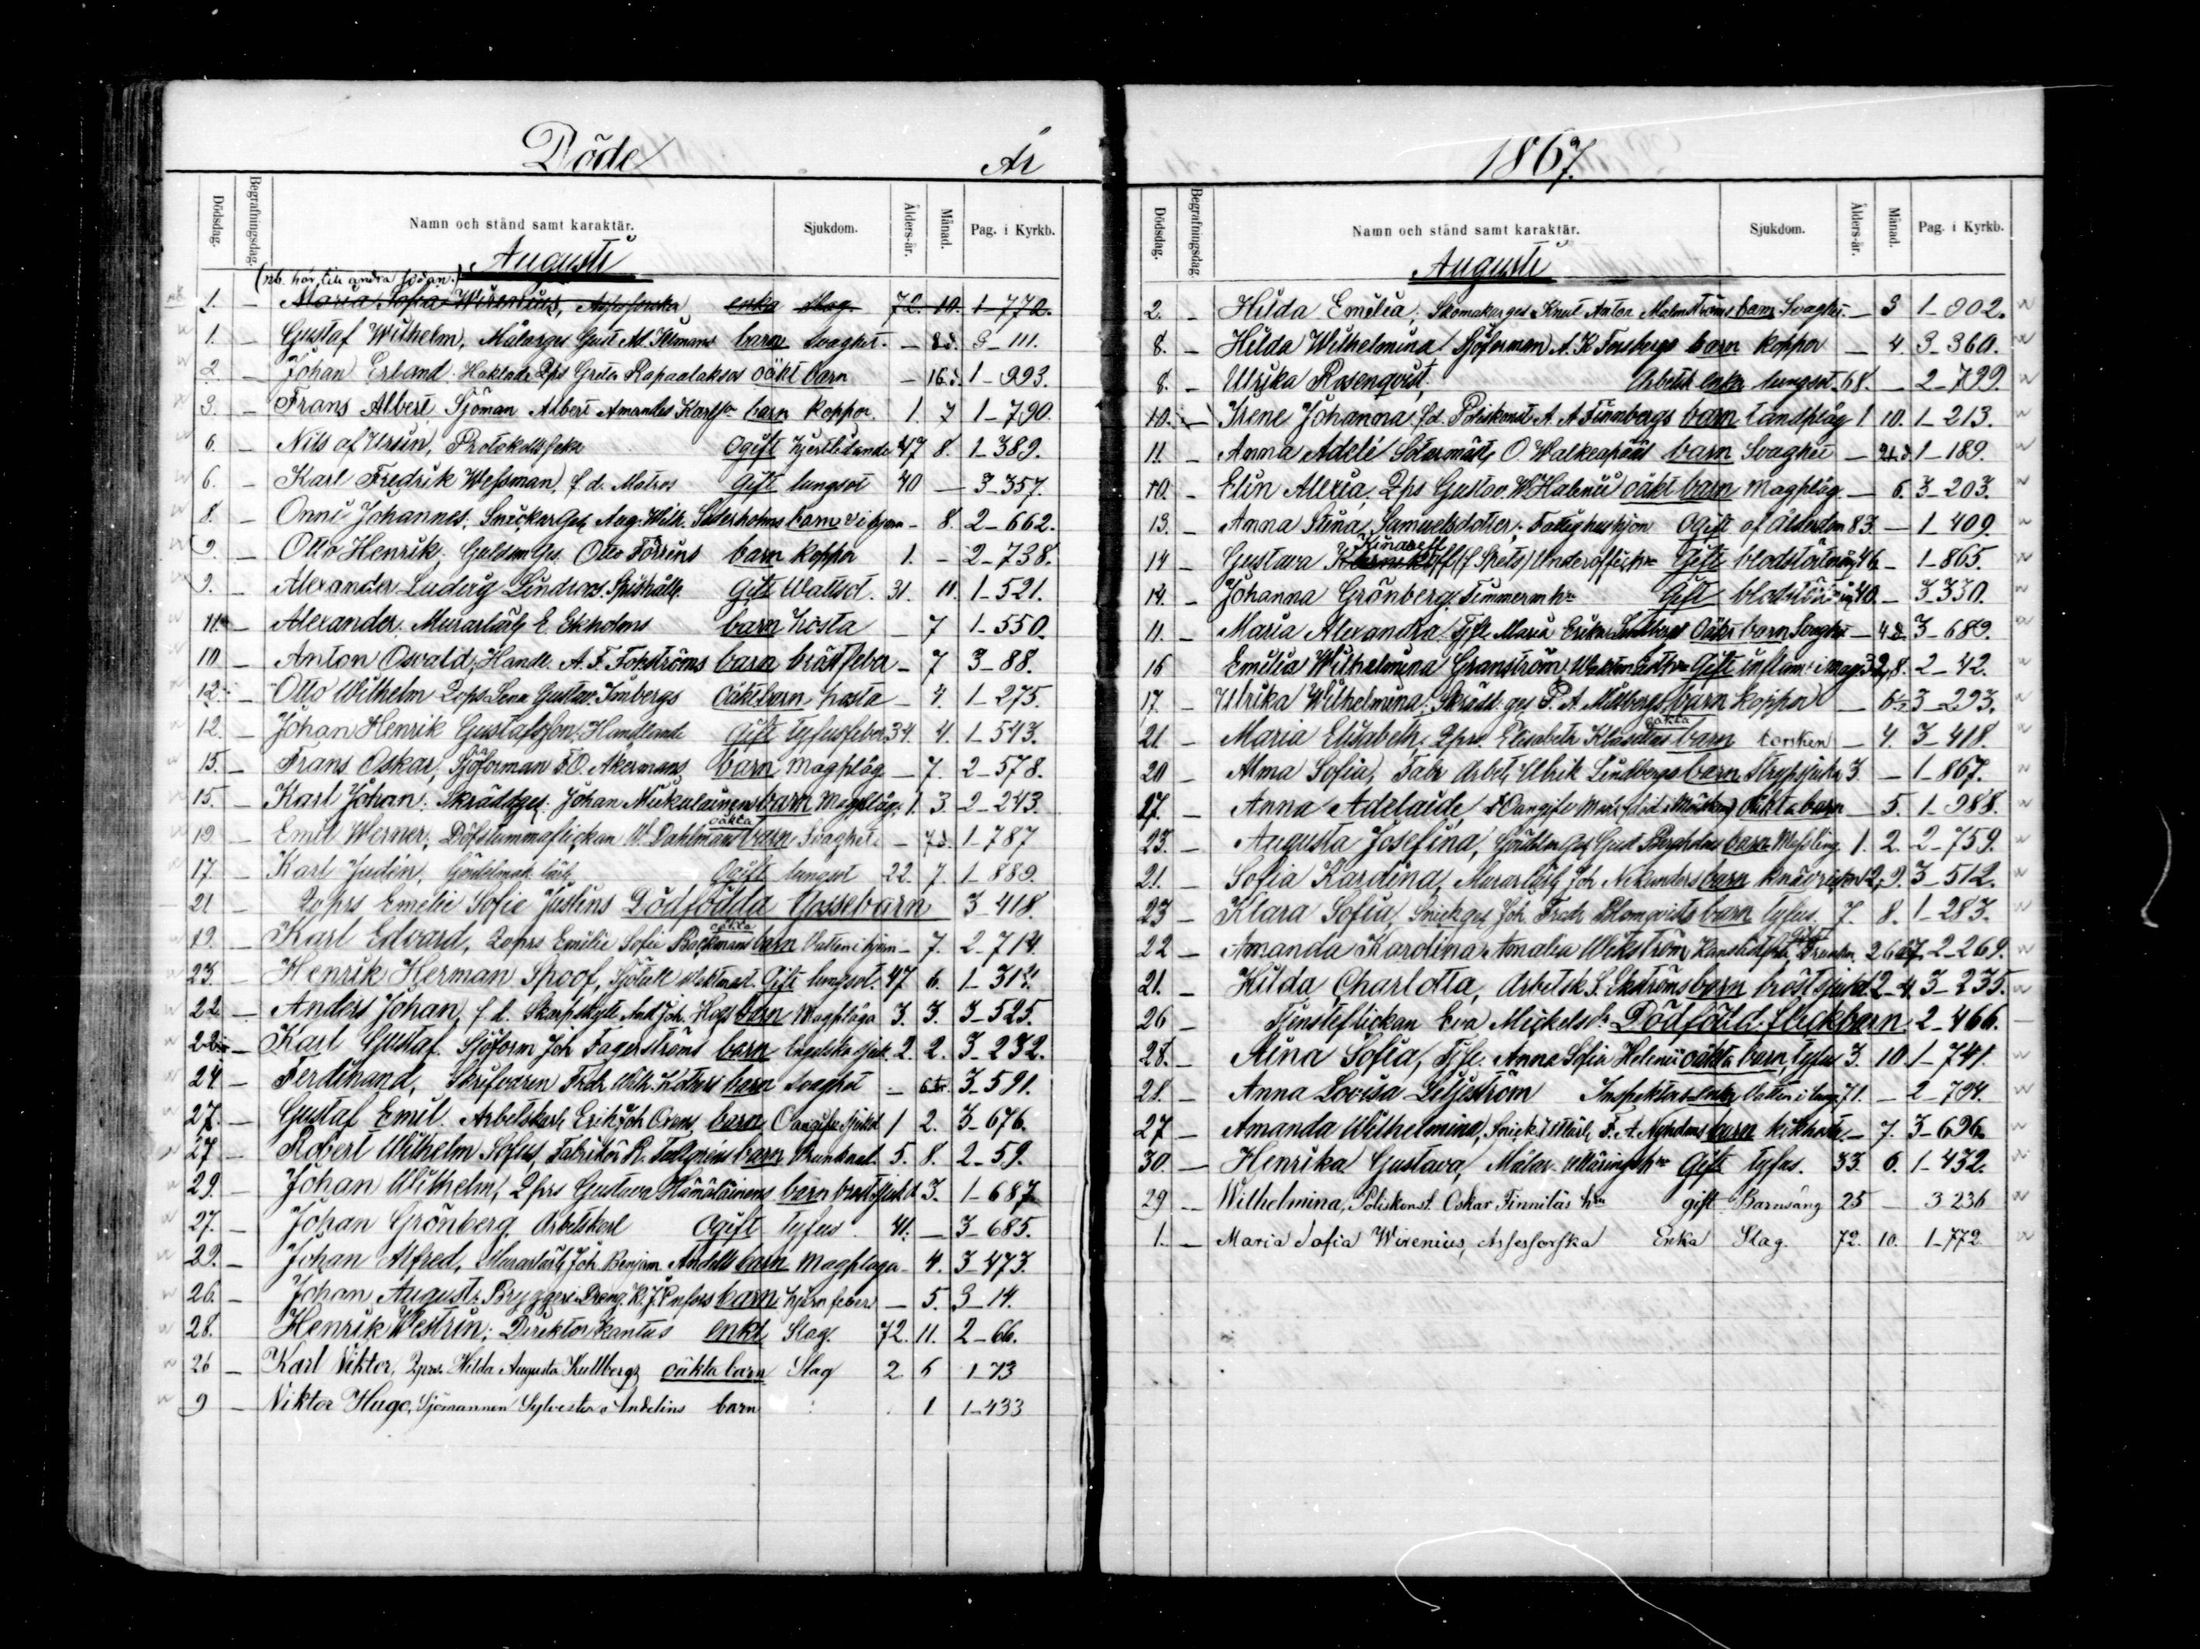 Döde År
Dödsdag. Begrafningsdag. Namn och stånd samt karaktär. Sjukdom. Ålders-år. Månad. Pag. i Kyrkb.
Augusti
(nb. hör till andra sidan.)
1. — Maria Sofia Wirenius, Assessorska enka Slag. 72. 10. 1-772.
1. — Gustaf Wilhelm, Målarges Gust. Ad. barn Svaghet. — 8 d. 3-111.
2. — Johan Erland. Qps Greta Rapaalaksos oäkt barn — 16 d. 1-993.
3. — Frans Albert, Sjöman Albert Amandus Karlss barn koppor. 1. 7 1-790.
6. — Nils af Ursin, Protokollssekr Ogift hjertlidande 47 8. 1-389.
6. — Karl Fredrik Wessman, f. d. Matros Gift lungsot 40 — 3-357.
8. — Onni Johannes. Snickarges. Aug. Wilh. Söderholms barn — 8. 2-662.
9. — Otto Henrik, Guldsm Ges. Otto barn koppor 1. - 2-738.
9. — Alexander Ludvig Lindroos. Gift Wattsot. 31. 11. 1-521.
11. — Alexander. Murarlärl. E. Ekholms barn hosta — 7 1-550.
10. — Anton Oswald, Handl. A. F. Fokströms barn bröstfeber — 7 3-88.
12. — Otto Wilhelm Qvps. Lena Gustav. Imbergs Oäkt barn hosta — 4. 1-275.
12. — Johan Henrik Gustafsson, Handlande Gift tyfusfeber 34. 4. 1-543.
15. — Frans Oskar, Sjöförman F. O. Åkermans barn Magplåg — 7. 2-578.
15. — Karl Johan. Skräddges. Johan Mukalainen barn Magplåg. 1. 3. 2-243.
19. — Emil Werner, Döfstummaflickan W. Dahlmans oäkta barn Svaghet — 7 d. 1-787
17. — Karl Judin, Gördelmak. lärl. Ogift lungsot 22. 7. 1-889.
21 — Qvprs Emelie Sofie Justins Dödfödda Gossebarn 3-418.
19. — Karl Edvard, Qvprs Emilie Sofie Backmans oäkta barn Vatten i hjern — 7. 2-714
23. — Henrik Herman Spoof, Sjötull Vaktmäst. Gift lungsot. 47 6. 1-312.
22. — Anders Johan, f. d. And. Joh. Hogs barn Magplåga 3. 3. 3-525.
22. — Karl Gustaf. Sjöform. Joh Fagerströms barn Engelska Sjuk. 2. 2. 3-232.
24 — Ferdinand, Skrifvaren Fredr. Wilh. barn Svaghet — 3-591.
27. — Gustaf Emil. Arbetskarl. Erik Joh. Orens. barn Oangifven Sjukd 1 2. 3-676.
27 — Robert Wilhelm Sofus, Fabrikör R. Fallgrens barn 5. 8. 2-59.
29. — Johan Wilhelm, Qprs Gustava Hämäläinens barn bröstsjukd 3. 1-687
27. — Johan Grönberg. Arbetskarl Ogift tyfus 41. — 3-685.
29. — Johan Alfred, Murarlärl. Joh. Benjam. barn Magplåga — 4. 3-473.
26. — Johan August, Bryggeri Dräng. K. J. barn hjernfeber — 5. 3-14.
28. Henrik Westrin; Direktor Kantus enkl. Slag. 72. 11. 2-66.
26 — Karl Viktor, Qprs. Hilda Augusta Kullbergs oäkta barn Slag 2. 6 1-73
9 — Viktor Hugo, Sjömannen Sylvester Andelins barn 1 1-433
1867.
Dödsdag. Begrafningsdag. Namn och stånd samt karaktär. Sjukdom. Ålders-år. Månad. Pag. i Kyrkb.
Augusti
2. — Hilda Emilia, Skomakarges Knut Anton Malmströms barn Svaghet — 3 1-902.
8. — Hilda Wilhelmina Sjöforman A. K. Forsbergs barn koppor — 4. 3-360.
8. — Ulrika Rosenqvist, Arbetsk enka lungsot. 68. — 2-799.
10. — Irene Johanna. f.d. Poliskonst. A. A. Finnbergs barn tandplåg 1. 10. 1-213.
11. — Anna Adele Sotarmäst. O. Walkeapääs barn Svaghet — 1-189.
10. — Elin Alexia, Qps Gustav. W. oäkt barn Magplåg. — 6. 3-203.
13. — Anna Stina Samuelsdotter, Fattighushjon Ogift af Ålderdom 83. — 1-409.
14 — Gustava Kinareff (f Spets) Underoffic. hu Gift blodstörtning 46 — 1-865.
14. — Johanna Grönberg. Timmerm hu Gift blodstörtning 40. — 3-330.
11. — Maria Alexandra. Tjfl. Maria Erika Oäkt barn Svaghet — 4 d. 3-689.
16 Emilia Wilhelmina Granström, Waktmäst hu Gift inflam. i mag. 32. 8. 2-42.
17. — Ulrika Wilhelmina. Skrädd. ges P. A. barn koppor — 3-293.
21. — Maria Elisabeth. Qprs. Elisabeth oäkta barn torsken — 4. 3-418.
20 — Alma Sofia, Fabr Arbet. Ulrik Lindbergs barn Strypsjuka 3. — 1-867.
17. — Anna Adelaide, oäkta barn — 5. 1-988.
23. — Augusta Josefina, Gust. Bergholms barn Messling 1. 2. 2-759.
21. — Sofia Karolina, Murarlärl. Joh. barn 2. 9. 3-512.
23 — Klara Sofia, Snickges Joh. Fredr. Blomqvists barn tyfus. 7. 8. 1-283.
22 — Amanda Karolina Amalia Wikström, Gift Drunkn. 26 2-269.
21. — Hilda Charlotta, Arbetsk. S. Ekströms barn bröstsjukd. 2 4. 3-235.
26 — Tjensteflickan Eva Mickelsdr. Dödföd. flickbarn 2-466.
28. — Aina Sofia, Tjfl. Anna Sofia oäkta barn, tyfus 3. 10 1-741.
28. — Anna Lovisa Liljeström Inspektors enka Vatten i lung. 71. — 2-794.
27 — Amanda Wilhelmina, F. A. Nyholms barn kikhosta — 7. 3-696.
30. — Henrika Gustava, Målar hu Gift tyfus. 33. 6. 1-432.
29 — Wilhelmina, Poliskonst. Oskar Finniläs hu gift Barnsäng 25 — 3 236
1. — Maria Sofia Wirenius, Assessorska Enka Slag. 72. 10. 1-772